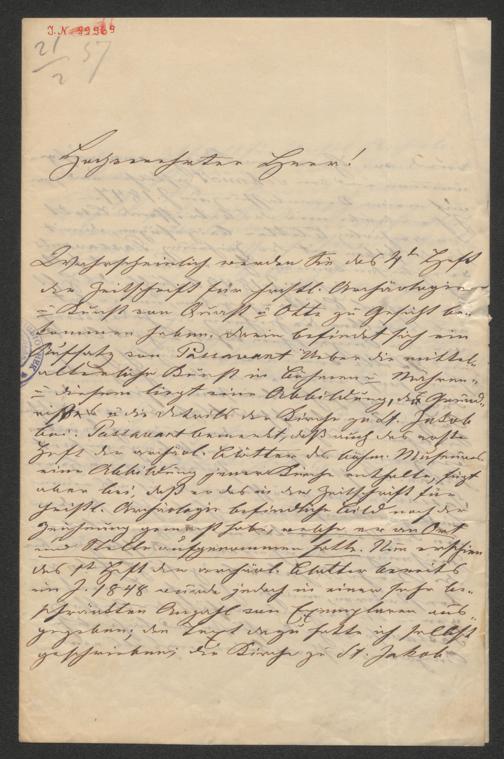 J. N. 99969
21/2 57
Hochverehrter Herr!
Wahrscheinlich werden Sie das 4te Heft
der Zeitschrift für christl. Archäologie
u Kunst von Quast u Otte zu Gesicht be-
kommen haben, darin befindet sich ein
Aufsatz von Passavant Ueber die mittel-
alterliche Kunst in Böhmen u Mähren
u diesem liegt eine Abbildung des Grund-
risses u die Details der Kirche zu St. Jakob
bei. Passavant bemerkt, daß auch das erste
Heft der archäol. Blätter des böhm. Museums
eine Abbildung jener Kirche enthalte, fügt
aber bei, daß er das in der Zeitschrift für
christl. Archäologie befindliche Bild nach der
Zeichnung gemacht habe, welche er an Ort
und Stelle aufgenommen hatte. Nun erschien
das 1te Heft der archäol. Blätter bereits
im J. 1848 wurde jedoch in einer sehr be-
schränkten Anzahl von Exemplaren aus-
gegeben; den Text dazu hatte ich selbst
geschrieben; die Kirche zu St. Jakob